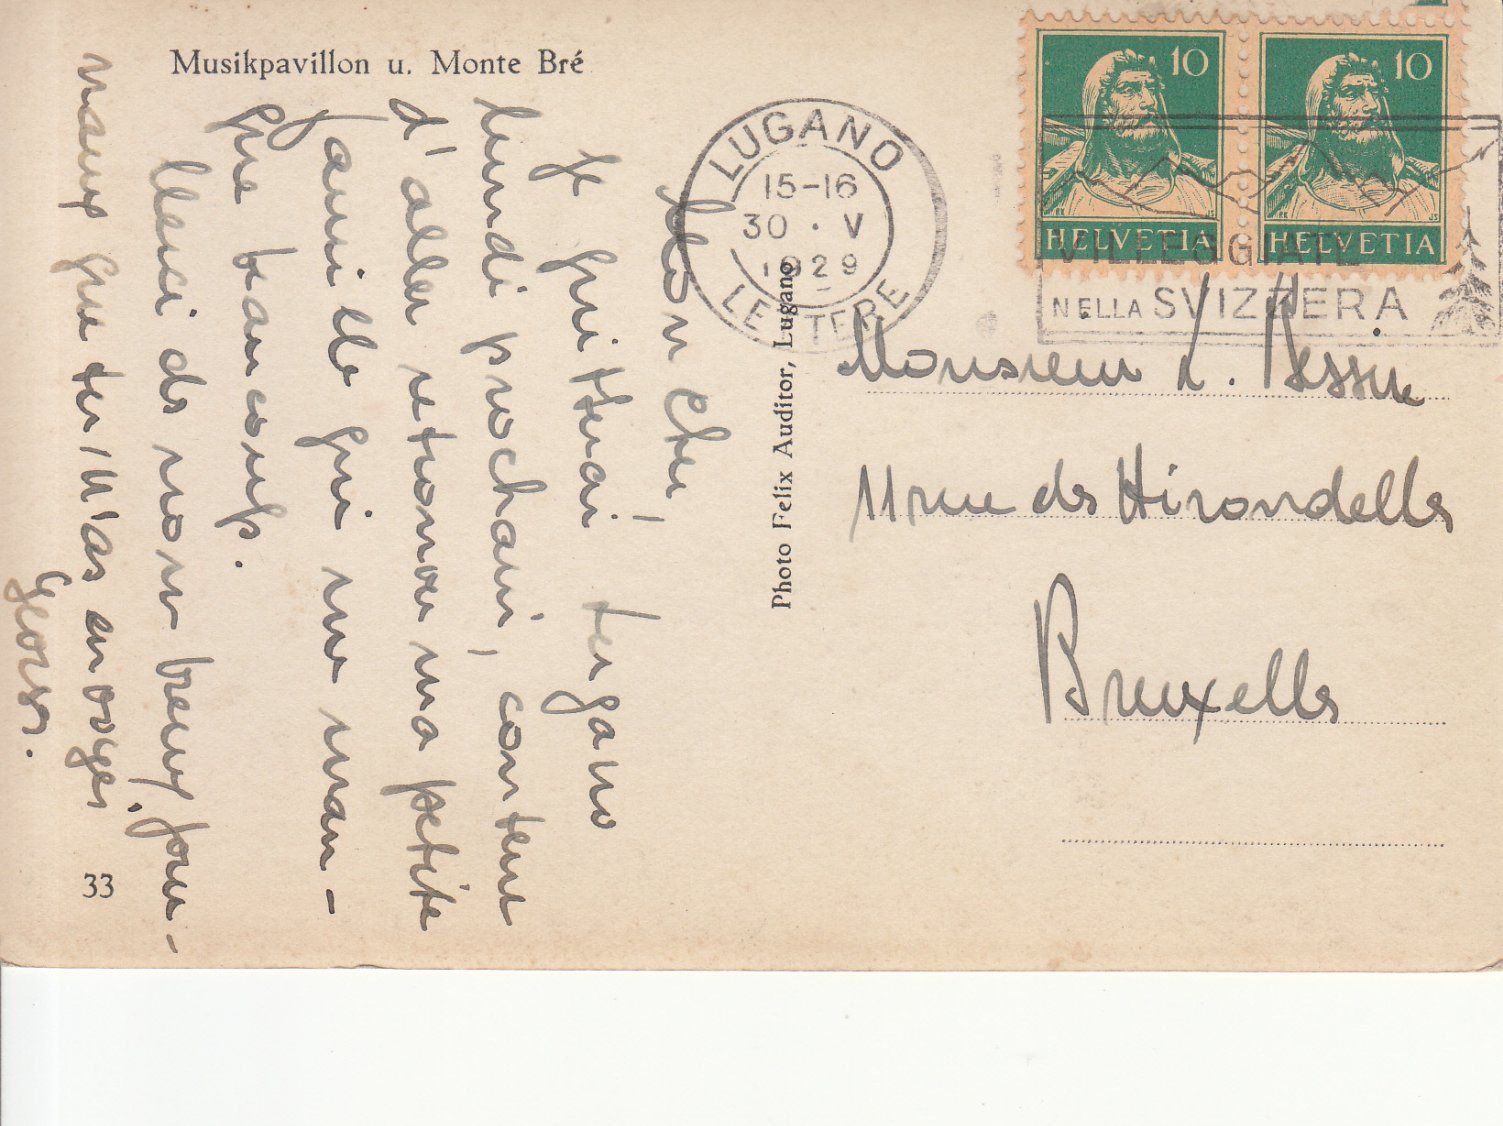 Musikpavillon u. Monte Bré
Mon Cher,
Je quitterai Lugano
lundi prochain, content
d'aller retrouver ma petite
famille qui me man-
que beaucoup.
Merci de nos beaux jour-
naux que tu m'as envoyés
Georges.
33
Photo Felix Auditor, Lugano
LUGANO
15-16
30 · V
1929
LETTERE
10
HELVETIA
10
HELVETIA
VILLEGGIATE
NELLA SVIZZERA
Monsieur L. Bessin
11 rue des Hirondelles
Bruxelles